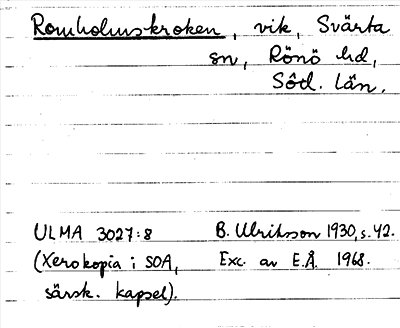 Romholmskroken, vik, Svärta
sn, Rönö hd,
Södl. län.
ULMA 3027:8 B. Ulriksson 1930, s. 42.
(Xerokopia i SOA, Exc. av E.Å. 1968.
särsk. kapsel).